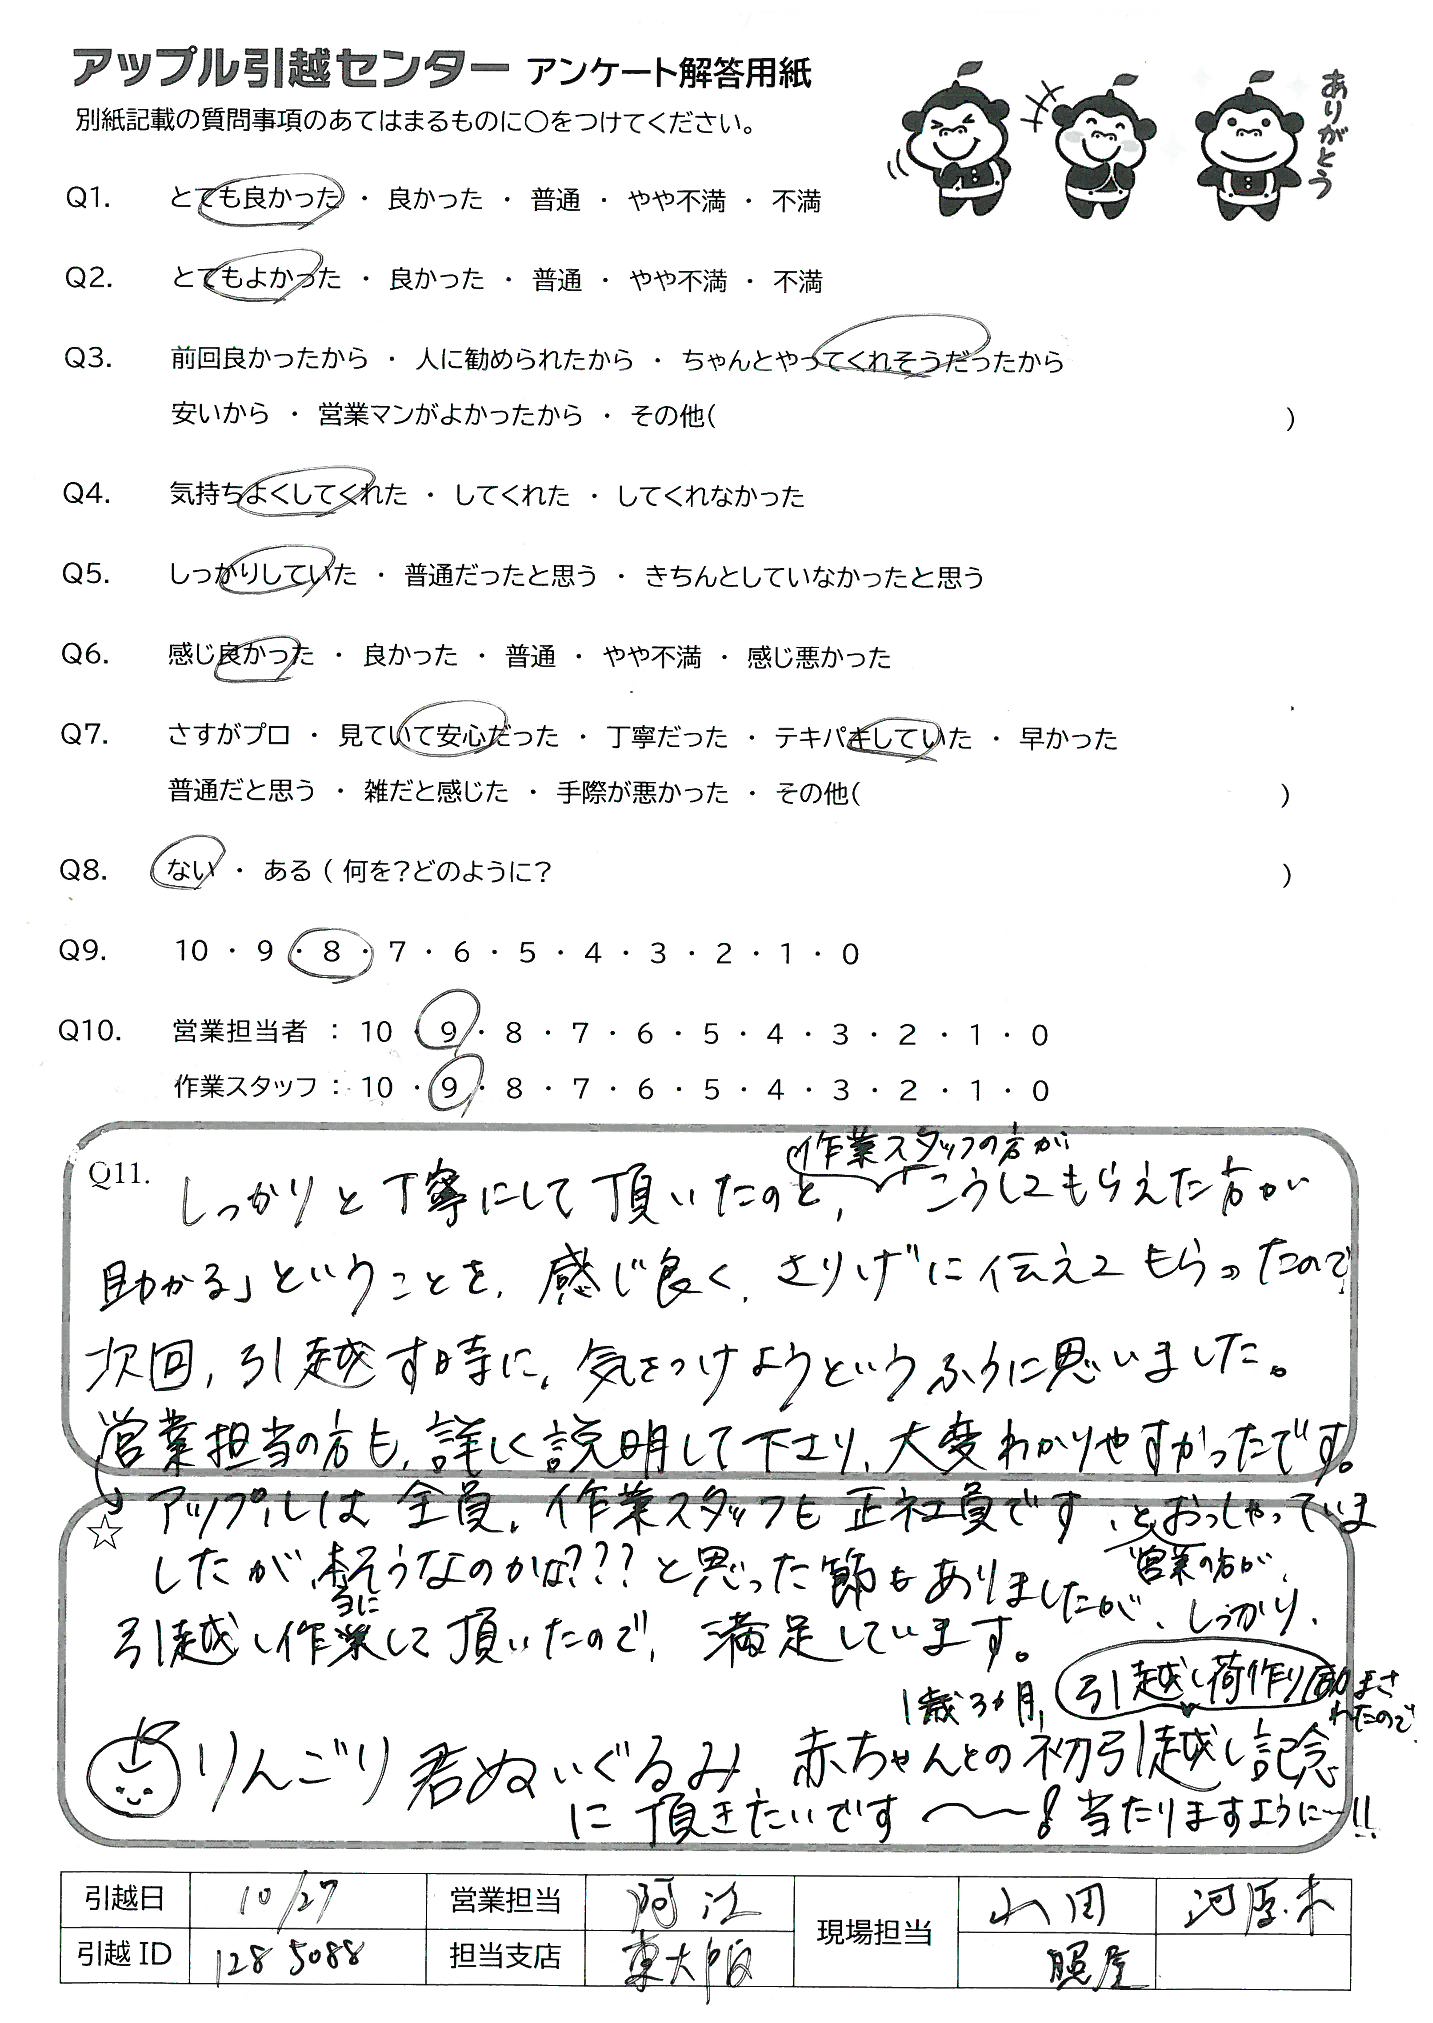 アップル引越センター アンケート解答用紙
別紙記載の質問事項のあてはまるものに○をつけてください。
ありがとう
Q1. とても良かった ・ 良かった ・ 普通 ・ やや不満 ・ 不満
Q2. とてもよかった ・ 良かった ・ 普通 ・ やや不満 ・ 不満
Q3. 前回良かったから ・ 人に勧められたから ・ ちゃんとやってくれそうだったから
安いから ・ 営業マンがよかったから ・ その他( )
Q4. 気持ちよくしてくれた ・ してくれた ・ してくれなかった
Q5. しっかりしていた ・ 普通だったと思う ・ きちんとしていなかったと思う
Q6. 感じ良かった ・ 良かった ・ 普通 ・ やや不満 ・ 感じ悪かった
Q7. さすがプロ ・ 見ていて安心だった ・ 丁寧だった ・ テキパキしていた ・ 早かった
普通だと思う ・ 雑だと感じた ・ 手際が悪かった ・ その他( )
Q8. ない ・ ある ( 何を?どのように? )
Q9. 10 ・ 9 ・ 8 ・ 7 ・ 6 ・ 5 ・ 4 ・ 3 ・ 2 ・ 1 ・ 0
Q10. 営業担当者 : 10 ・ 9 ・ 8 ・ 7 ・ 6 ・ 5 ・ 4 ・ 3 ・ 2 ・ 1 ・ 0
作業スタッフ : 10 ・ 9 ・ 8 ・ 7 ・ 6 ・ 5 ・ 4 ・ 3 ・ 2 ・ 1 ・ 0
作業スタッフの方が
Q11. しっかりと丁寧にして頂いたのと、「こうしてもらえた方が
助かる」ということを、感じ良く、さりげに伝えてもらったので、
次回、引越す時に、気をつけようというふうに思いました。
営業担当の方も、詳しく説明して下さり、大変わかりやすかったです。
☆ アップルは全員、作業スタッフも正社員です、とおっしゃっていま
営業の方が、
したが、本当にそうなのかな???と思った節もありましたが、しっかり、
引越し作業して頂いたので、満足しています。
1歳3ヵ月、 引越し荷作り 励まさ
れたので
りんごり君ぬいぐるみ、赤ちゃんとの初引越し記念
に頂きたいです〜〜! 当たりますように〜!!
引越日 10/27 営業担当 阿江 現場担当 山田 河原木
引越ID 1285088 担当支店 東大阪 照屋